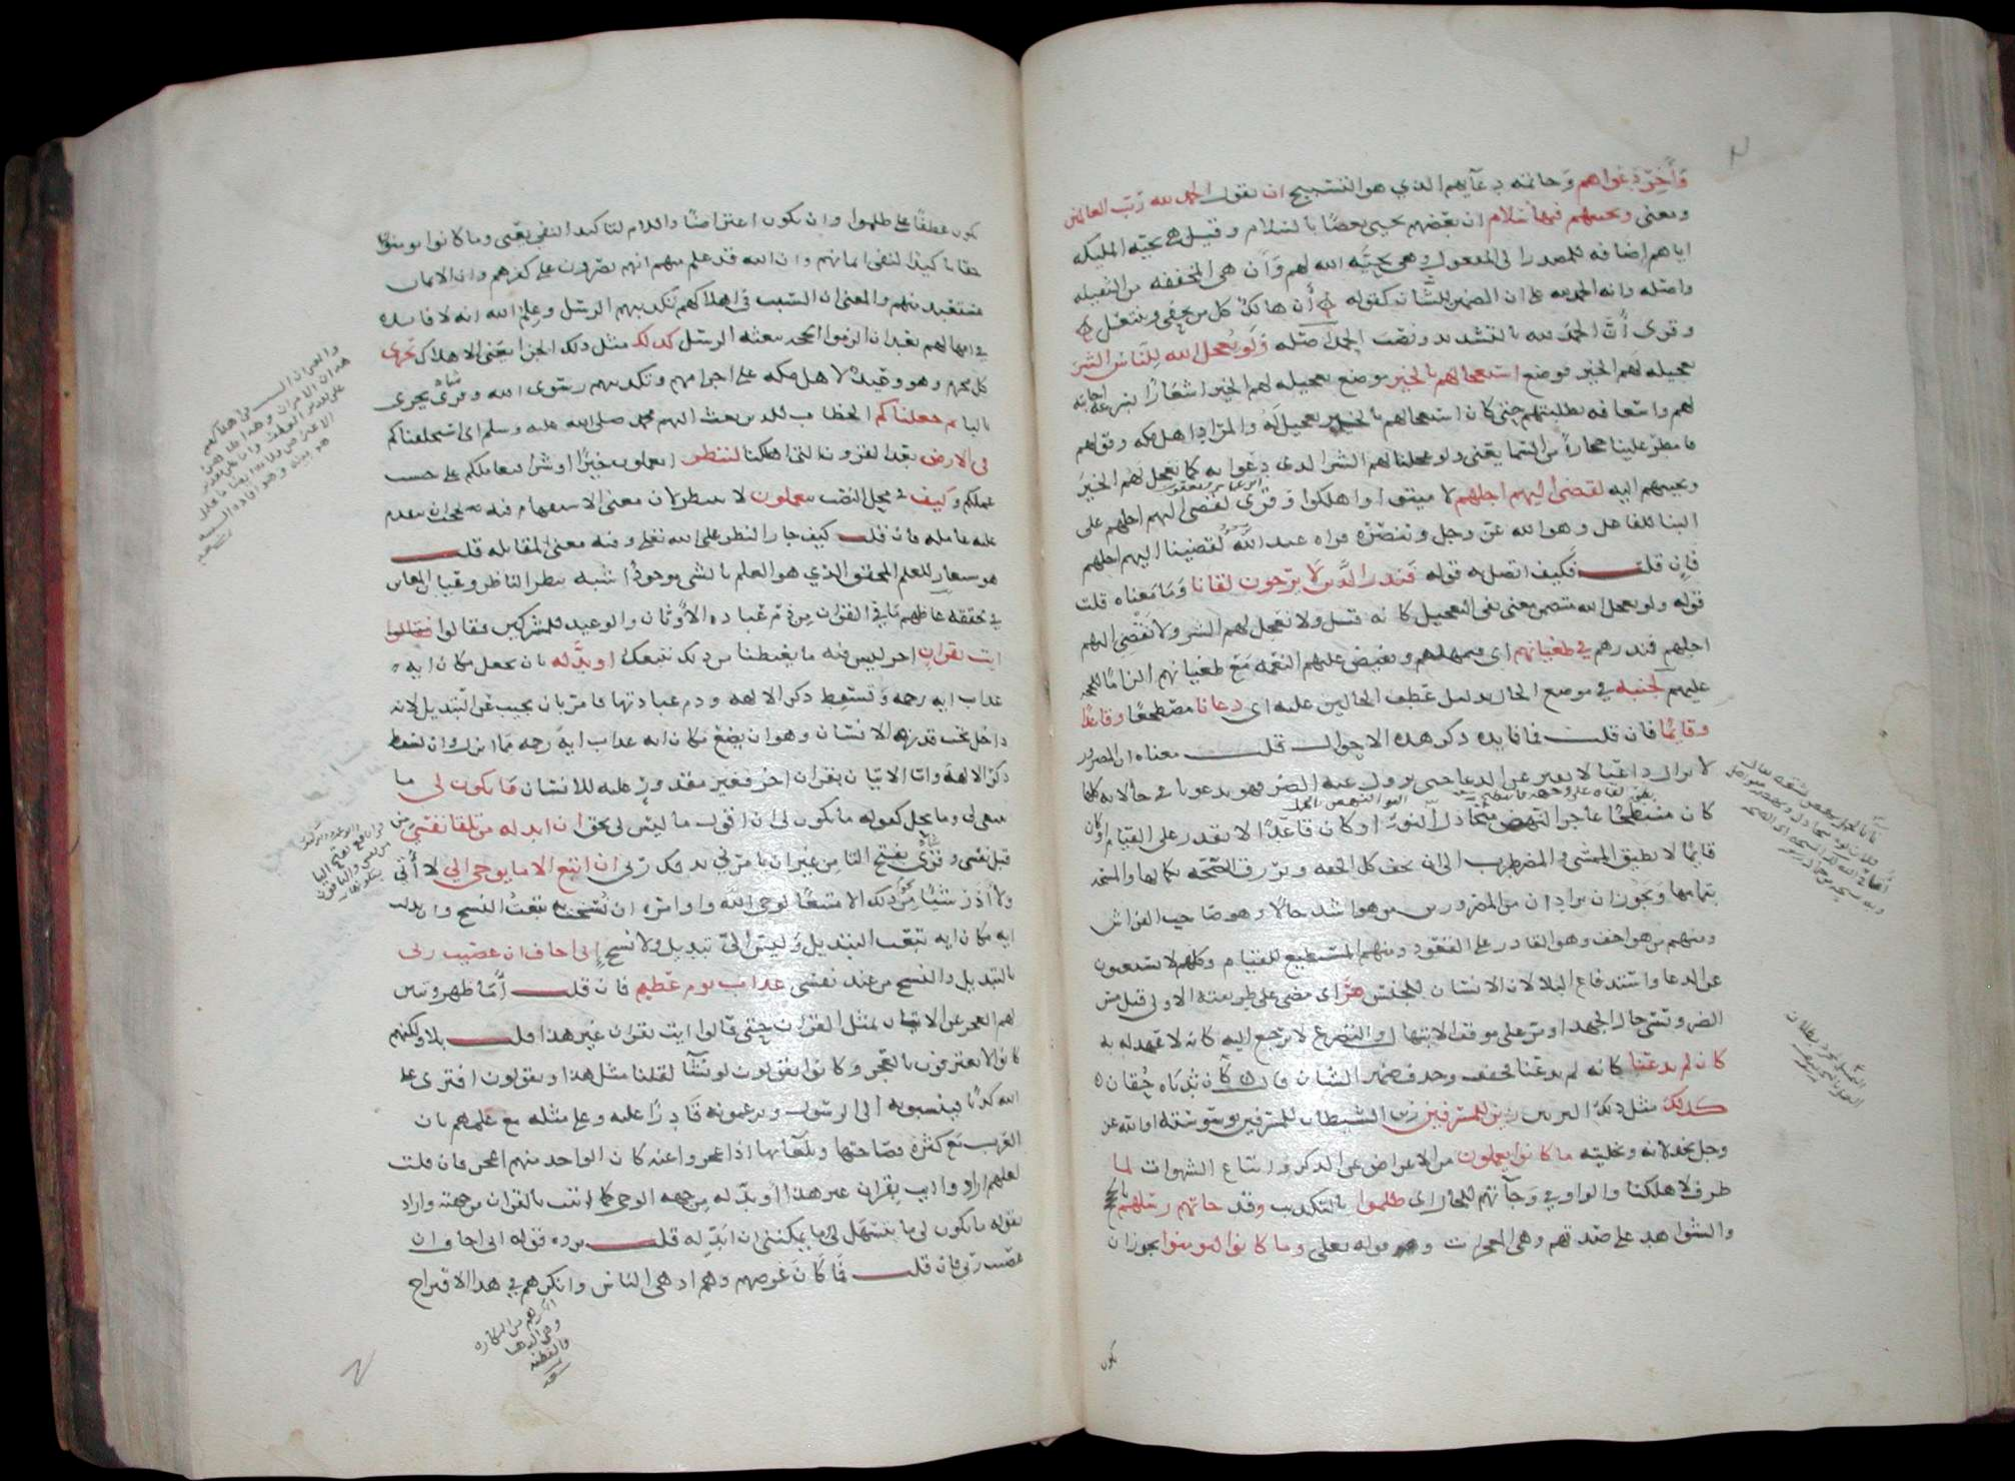 وَآخِرُ دَعْواهم وخاتمة دعآيهم الذي هو التسبيح ان يقولوا الحمد لله رب العالمين
ومعنى وتحيتهم فيها سلام ان بعضهم يحيى بعضا بالسلام وقيل هي تحية المليكه
اياهم اضافه للمصدر الى المفعول وقيل هى تحيَّه الله لهم وأن هي المخففه من الثقيله
واصله انه الحمد لله على ان الضمير للشان كقوله أن هالكٌ كل من يحفى وينتعل
وقرى أنَّ الحمدَ لله بالتشديد ونصب الحمد اصله ولو يعجل الله للناس الشر
تعجيله لهم الخير فوضع استعجالهم بالخير موضع تعجيله لهم الخير اشعارًا بسرعة اجابته
لهم واسعافه بطلبتهم حتى كان استعجالهم بالخير تعجيل له والمراد اهل مكه وقولهم
فامطر علينا حجارةً من السما يعنى ولو عجلنا لهم الشر الذى دعوا به كما نعجل لهم الخير
ونجيبهم اليه لقضى اليهم اجلهم لاميتوا واهلكوا وقرى لقضى اليهم اجلهم على
البنا للفاعل وهو الله عز وجل وتنصره قراه عبد الله لقضينا اليهم اجلهم
فان قلت فكيف اتصل به قوله فنذر الذين لا يرجون لقانا وما معناه قلت
قوله ولو يعجل الله متضمن معنى نفى التعجيل كانه قيل ولا نعجل لهم الشر ولا نقضى اليهم
اجلهم فنذرهم في طغيانهم اى فنمهلهم ونفيض عليهم النعمه مع طغيانهم الزاما للحجه
عليهم لجنبه في موضع الحال بدليل عطف الحالين عليه اى دعانا مضطجعا وقاعدًا
وقايمًا فان قلت فما فايده ذكر هذه الاحوال قلت معناه ان المضرور
لا يزال داعيا لا يفتر عن الدعا حتى يزول عنه الضر فهو يدعونا في حالاته كلها
كان منبطحًا عاجز النهض متخاذل النوء او كان قاعدًا لا يقدر على القيام او كان
قايمًا لا يطيق المشى والمضطرب الى ان يخف كل الخفه ويرزق الصحه بكمالها والمسحه
بتمامها ويجوز ان يراد ان من المضرورين من هو اشد حالًا وهو صاحب الفراش
ومنهم من هو اخف وهو القادر على القعود ومنهم المستطيع للقيام وكلهم لا يستغنون
عن الدعا واستدفاع البلا لان الانسان للجنس مرَّ اى مضى على طريقته الاولى قبل مس
الضر ونسى حال الجهد او مر على موقف الابتهال والتضرع لا يرجع اليه كانه لا عهد له به
كان لم يدعنا كانه لم يدعنا فخفف وحذف ضمير الشان قال كأن ثدياه حُقان
كذلك مثل ذلك التزيين زين للمسرفين زين الشيطان للمسرفين بوسوسته او الله عز
وجل بخذلانه وتخليته ما كانوا يعملون من الاعراض عن الذكر واتباع الشهوات لما
ظرف لاهلكنا والواو في وجآتهم للحال اى ظلموا بالتكذيب وقد جاتهم رسلهم بالحجج
والشواهد على صدقهم وهى المعجزات وقوله تعلى وما كانوا ليومنوا يجوز ان
يكون
يكون عطفًا على ظلموا وان يكون اعتراضًا واللام لتاكيد النفى يعنى وما كانوا يومنون
حقا تاكيدًا لنفى ايمانهم وان الله قد علم منهم انهم يصرون على كفرهم وان الايمان
مستبعد منهم والمعنى ان السبب في اهلاكهم تكذيبهم الرسل وعِلمُ الله انه لا فايده
في امهالهم بعد ان الزموا الحجه ببعثه الرسل كذلك مثل ذلك الجزا يعنى الاهلاك نجزى
كل مجرم وهو وعيدٌ لاهل مكه على اجرامهم وتكذيبهم رسول الله وقرى يجزى
باليا ثم جعلناكم الخطاب للذين بعث اليهم محمد صلى الله عليه وسلم اى استخلفناكم
في الارض بعد القرون التى اهلكنا لننظر اتعملون خيرًا او شرا فنعاملكم على حسب
عملكم وكيف في محل النصب بتعملون لا بننظر لان معنى الاستفهام فيه يحجب ان يتقدم
عليه عامله فان قلت كيف جاز النظر على الله تعلى وفيه معنى المقابله قلت
هو مستعار للعلم المحقق الذي هو العلم بالشى موجودًا شبه بنظر الناظر وعيان المعاين
في تحققه غاظهم ما في القران من ذم عباده الاوثان والوعيد للمشركين فقالوا
ايت بقران اخر ليس فيه ما يغيظنا من ذلك نتبعك او بدّله بان تجعل مكان ايه
عذاب ايه رحمه وتسقط ذكر الالهه وذم عبادتها فامر بان يجيب عن التبديل لانه
داخل تحت قدره الانسان وهو ان يضع مكان ايه عذاب ايه رحمه مما انزل وان يسقط
ذكر الالهه واما الاتيان بقران اخر فغير مقدور عليه للانسان ما يكون لى ما
ينبغى لى وما يحل كقوله ما يكون لى ان اقول ما ليس لى بحق ان ابدله من تلقا نفسى من
قبل نفسى وقرى بفتح التا من غير ان يامرنى بذلك ربى ان اتبع الا ما يوحى الي لا أتى
ولا أذر شيئا من نحو ذلك الا متبعًا لوحى الله واوامره ان نُسخت ايه تبعتُ النسخ وان بدلت
ايه مكان ايه تبعت التبديل وليس الىّ تبديل ولا نسخ انى اخاف ان عصيت ربى
بالتبديل والنسخ من عند نفسى عذاب يوم عظيم فان قلت أمَا ظهر وتبين
لهم العجز عن الاتيان بمثل القران حتى قالوا ايت بقران غير هذا قلت بلا ولكنهم
كانوا لا يعترفون بالعجز وكانوا يقولون لو نشآ لقلنا مثل هذا ويقولون افترى على
الله كذبًا فينسبونه الى الرسول ويزعمونه قادرًا عليه وعلى مثله مع علمهم بان
العرب مع كثرة فصاحتها وبلغآيها اذا عجزوا عنه كان الواحد منهم اعجز فان قلت
لعلهم ارادوا ايت بقران غير هذا أو بدّله من جهه الوحى كما اتيت بالقران من جهته واراد
بقوله ما يكون لى ما يتسهل لى وما يمكننى ان ابدله قلت يرده قوله انى اخاف ان
عصيت ربى فان قلت فما كان غرضهم وهم ادهى الناس وانكرهم في هذا الاقتراح